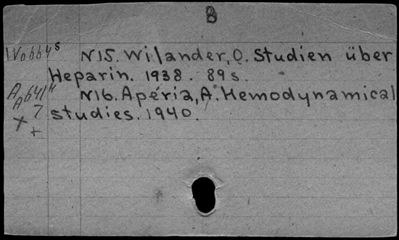 8
N15. Wilander, O. Studien über
Heparin. 1938. 89 s.
N16. Apéria, A. Hemodynamical
studies. 1940.
7
+
+